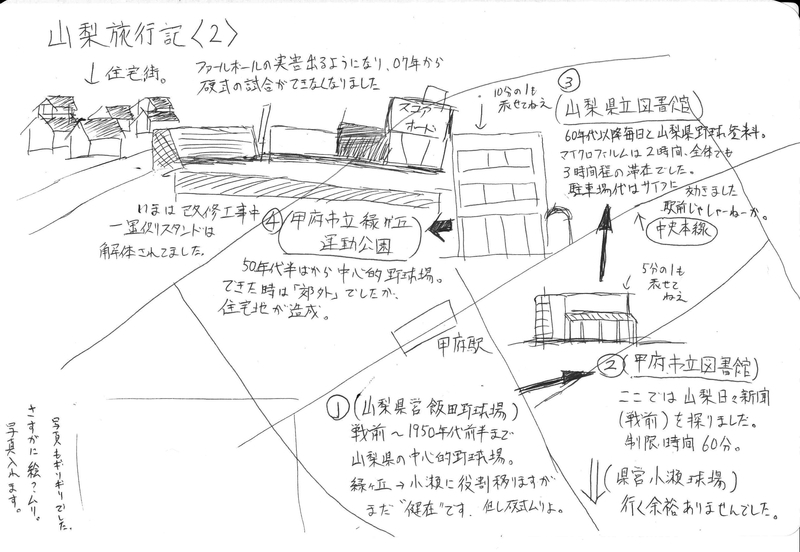 山梨旅行記〈2〉
↓住宅街。
ファールボールの実害出るようになり、07年から
硬式の試合ができなくなりました
スコア
ボード
10分の1も
表せてねえ
③
山梨県立図書館
60年代以降毎日と山梨県野球登年料。
マイクロフィルムは2時間、全体でも
3時間程の滞在でした。
駐車場代はサイフに効きました
駅前じゃしゃーねーか。
中央本線
いまは改修工事中
一塁側スタンドは
解体されてました。
④
甲府市立緑が丘
運動公園
50年代半ばから中心的野球場。
できた時は「郊外」でしたが、
住宅地が造成。
5分の1も
表せて
ねえ
甲府駅
②(甲府市立図書館)
ここでは山梨日々新聞
(戦前)を探りました。
制限時間60分。
①(山梨県営飯田野球場)
戦前〜1950年代前半まで
山梨県の中心的野球場。
緑ヶ丘→小瀬に役割移りますが
まだ“健在”です。但し硬式ムリよ。
(県営小瀬球場)
行く余裕ありませんでした。
写真もギリギリでした。
さすがに絵?ムリ。
写真入れます。